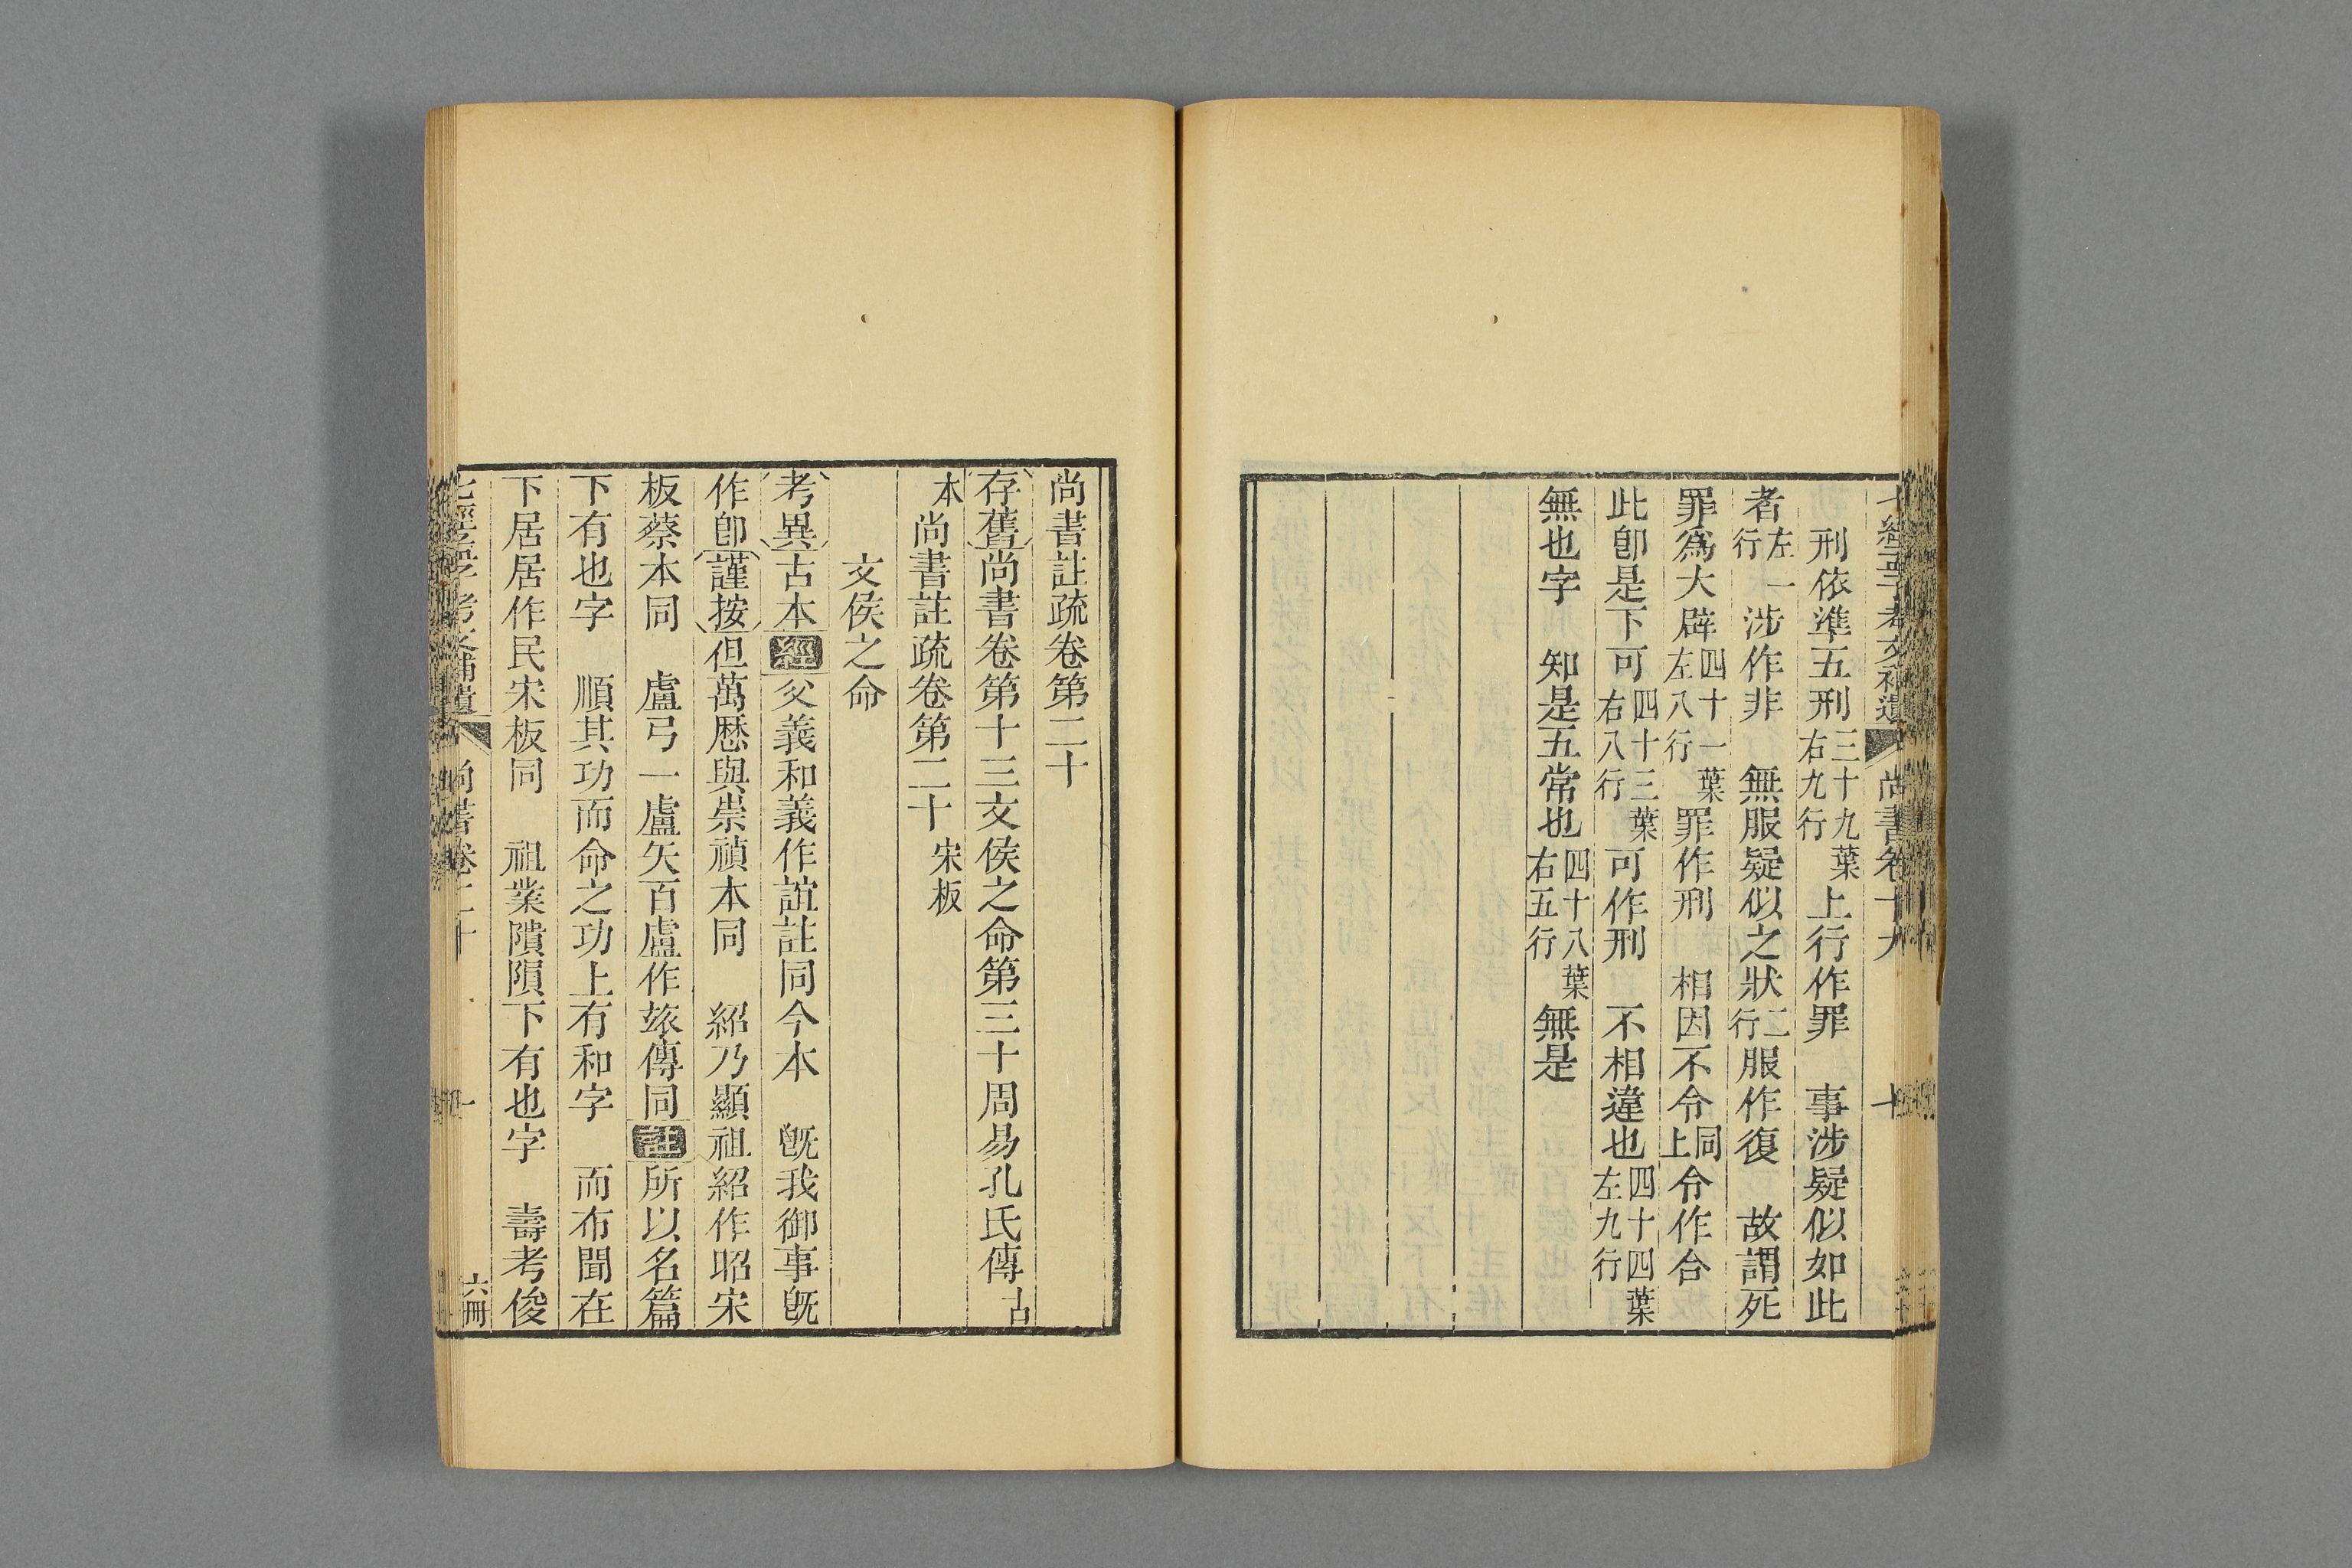 七經孟子考文補遺 尚書卷十九 十
刑依準五刑三十九葉右九行上行作罪 事涉疑似如此
者左一行涉作非 無服疑似之狀二行服作復 故謂死
罪爲大辟四十一葉左八行罪作刑 相因不令同上令作合
此卽是下可四十三葉右八行可作刑 不相違也四十四葉左九行
無也字 知是五常也四十八葉右五行無是
尚書註疏卷第二十
存舊尚書卷第十三文侯之命第三十周易孔氏傳古
本尚書註疏卷第二十宋板
文侯之命
考異古本經父義和義作誼註同今本 旣我御事旣
作卽謹按但萬厯與崇禎本同 紹乃顯祖紹作昭宋
板蔡本同 盧弓一盧矢百盧作玈傳同註所以名篇
下有也字 順其功而命之功上有和字 而布聞在
下居居作民宋板同 祖業隤隕下有也字 壽考俊
七經孟子考文補遺 尚書卷二十 一 六冊